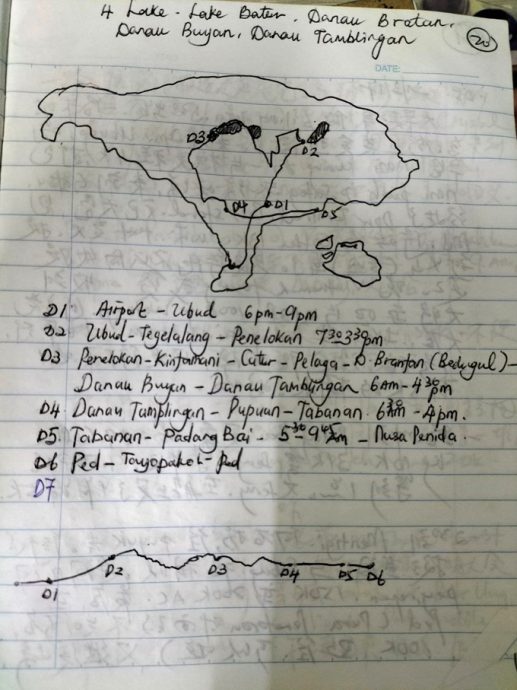 4 Lake - Lake Batur. Danau Bratan.
Danau Buyan, Danau Tamblingan
20
DATE:
D3
D2
D4
D1
D5
D1 Airport - Ubud 6pm-9pm
D2 Ubud - Tegelalang - Penelokan 7³⁰-3³⁰pm
D3 Penelokan - Kintamani - Catur - Pelaga - D. Brantan (Bedugul) -
Danau Buyan - Danau Tamblingan 6AM - 4³⁰pm
D4 Danau Tamplingan - Pupuan - Tabanan. 6³⁰AM - 4pm.
D5. Tabanan - Padang Bai - 5³⁰-9⁴⁵am - Nusa Penida.
D6 Ped - - Ped
D7
D1
D2
D3
D4
D5
D6